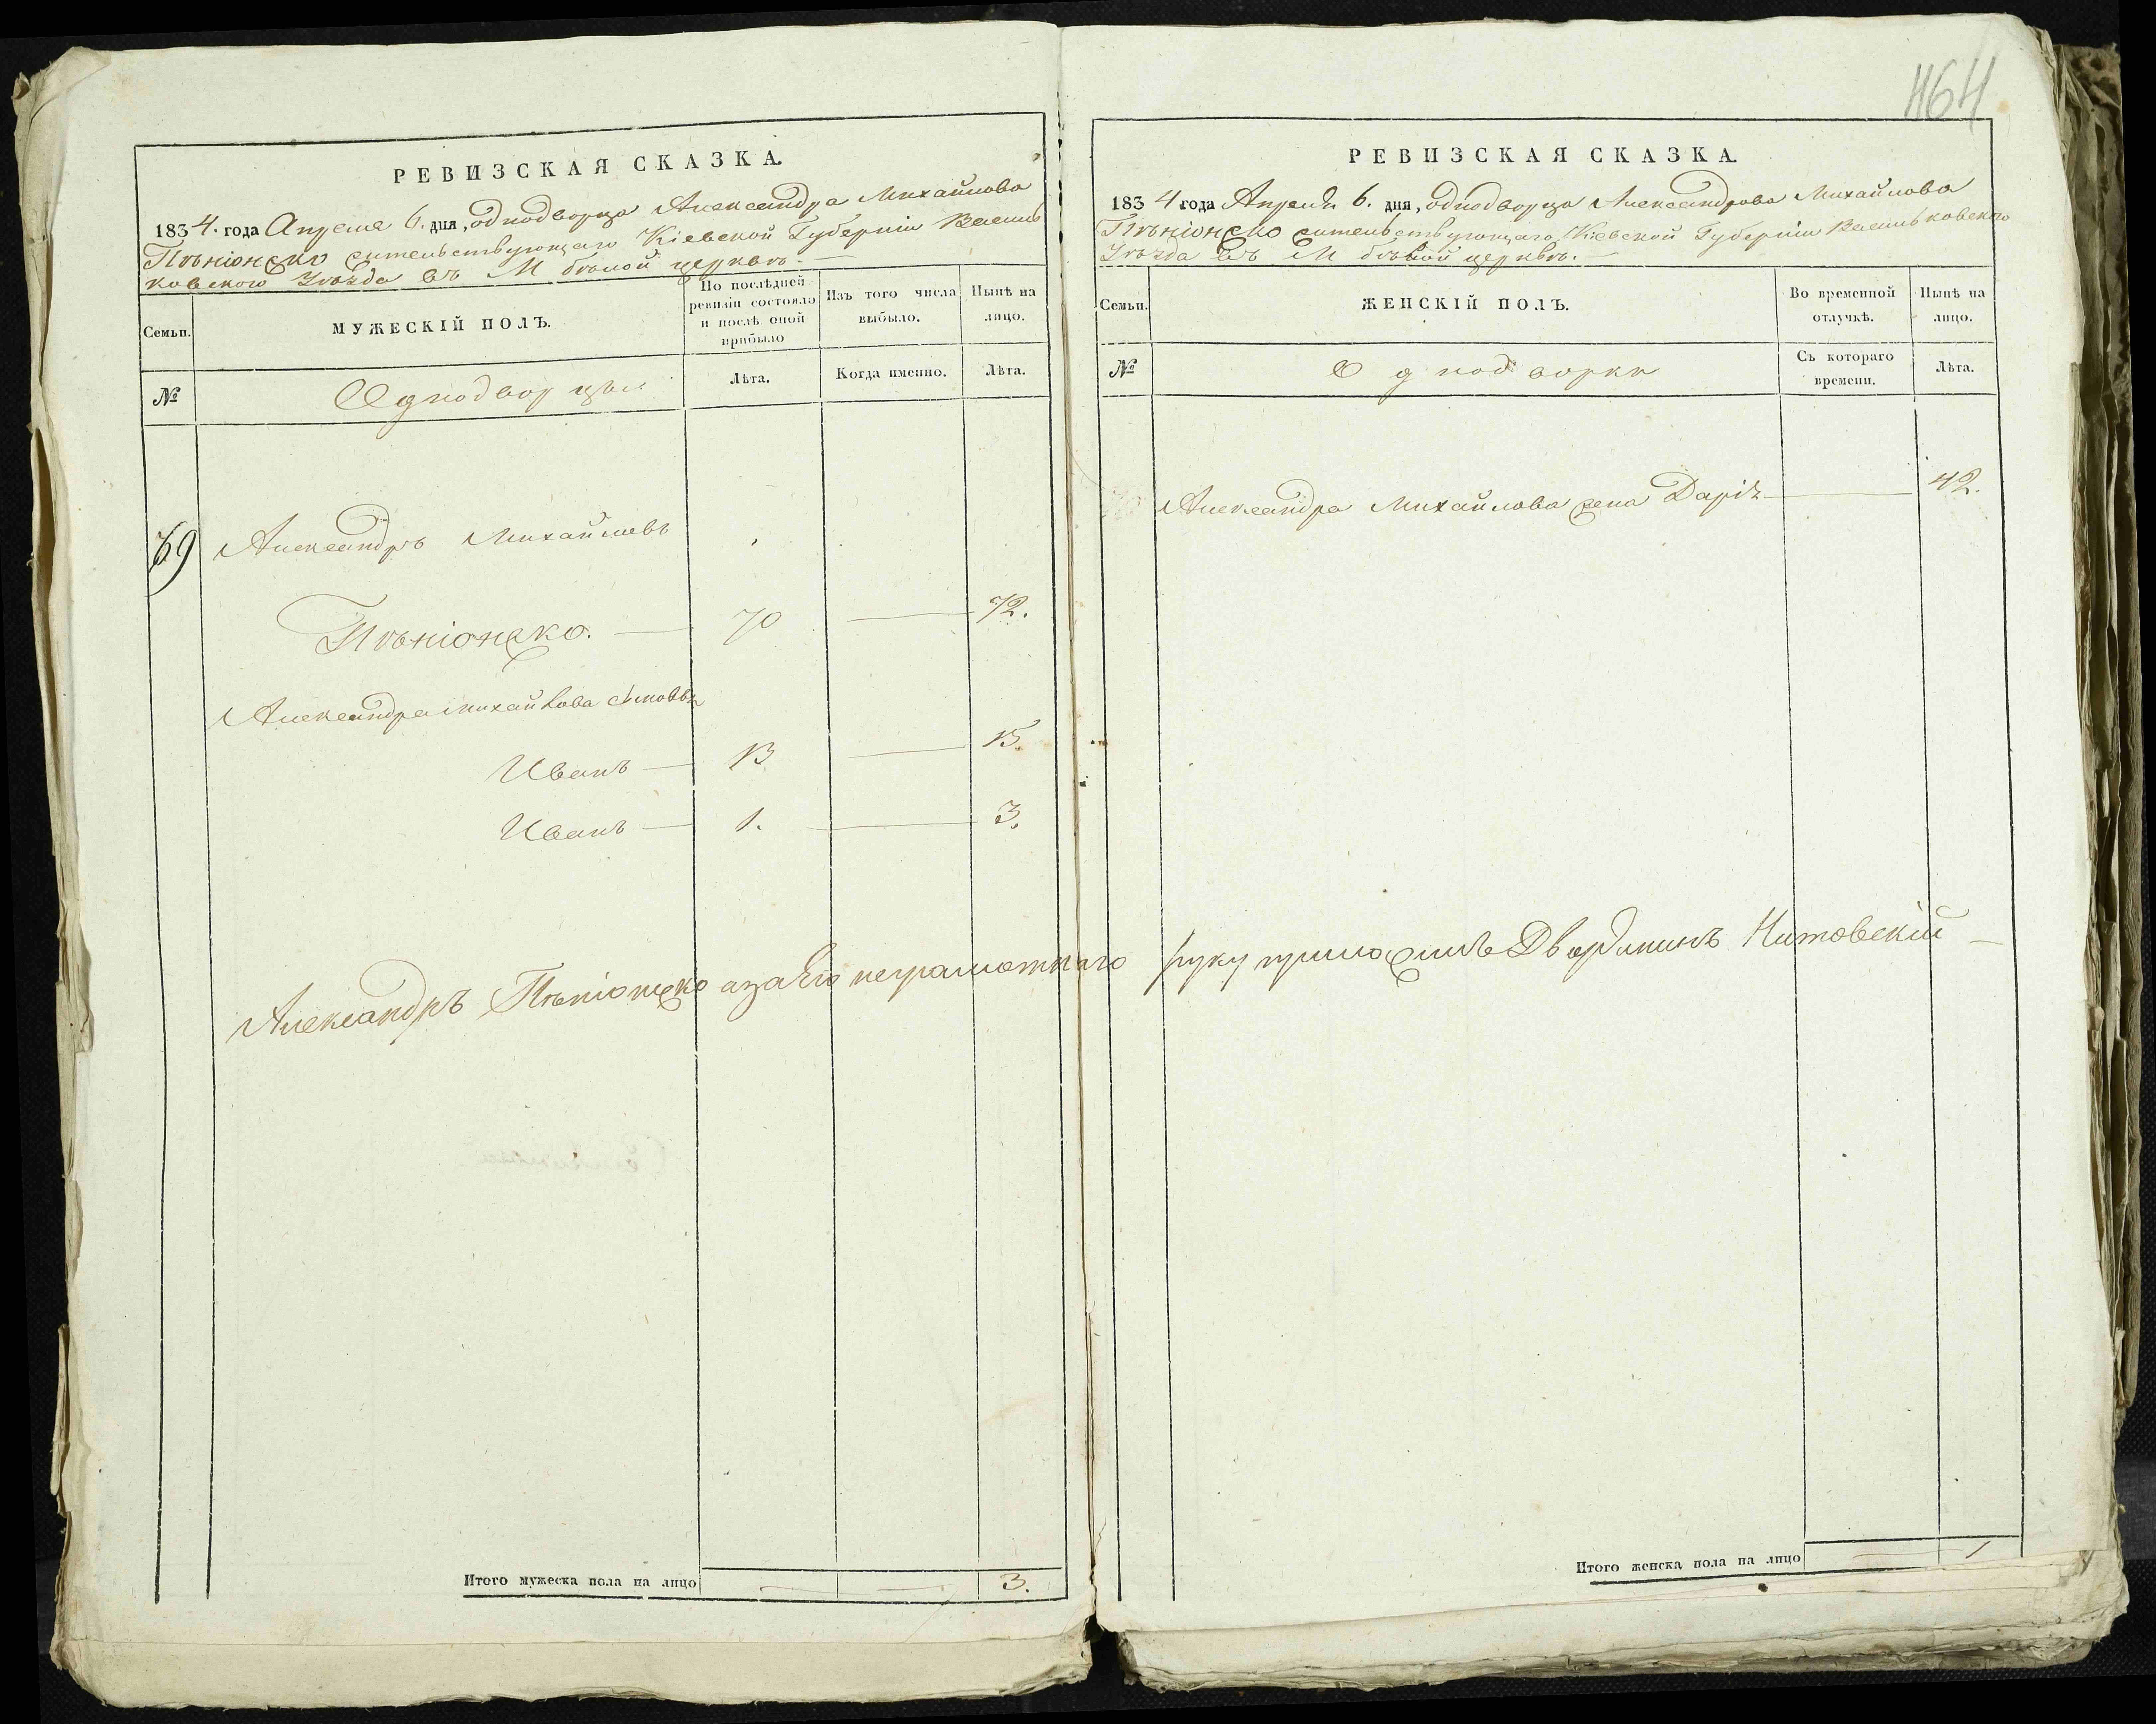 464
РЕВИЗСКАЯ СКАЗКА.
1834. года Апреля 6. дня, однодворца Александра Михайлова
Пѣніонжко жительствующаго Кіевской Губерніи Василь
ковского Уѣзда въ М бѣлой церквѣ. —
Семьи.
МУЖЕСКІЙ ПОЛЪ.
По послѣдней
ревизіи состояло
и послѣ оной
прибыло
Изъ того числа
выбыло.
Нынѣ на
лицо.
№
Однодворцы
Лѣта.
Когда именно.
Лѣта.
69 Александръ Михайловъ
Пѣніонжко. — 70 — 72.
Александра Михайлова сыновья
Иванъ — 13 — 15.
Иванъ — 1. — 3.
Александръ Пѣніонжко а за Его неграмотнаго руку приложилъ Дворянинъ
Итого мужеска пола на лицо — — 3.
РЕВИЗСКАЯ СКАЗКА.
1834 года Апреля 6. дня, однодворца Александрова Михайлова
Пѣніонжко жительствующаго Кіевской Губерніи Васильковского
Уѣзда въ М бѣлой церквѣ. —
Семьи.
ЖЕНСКІЙ ПОЛЪ.
Во временной
отлучкѣ.
Нынѣ на
лицо.
№
Однодворки
Съ котораго
времени.
Лѣта.
Александра Михайлова жена Дарія — 42.
Итого женска пола на лицо — 1